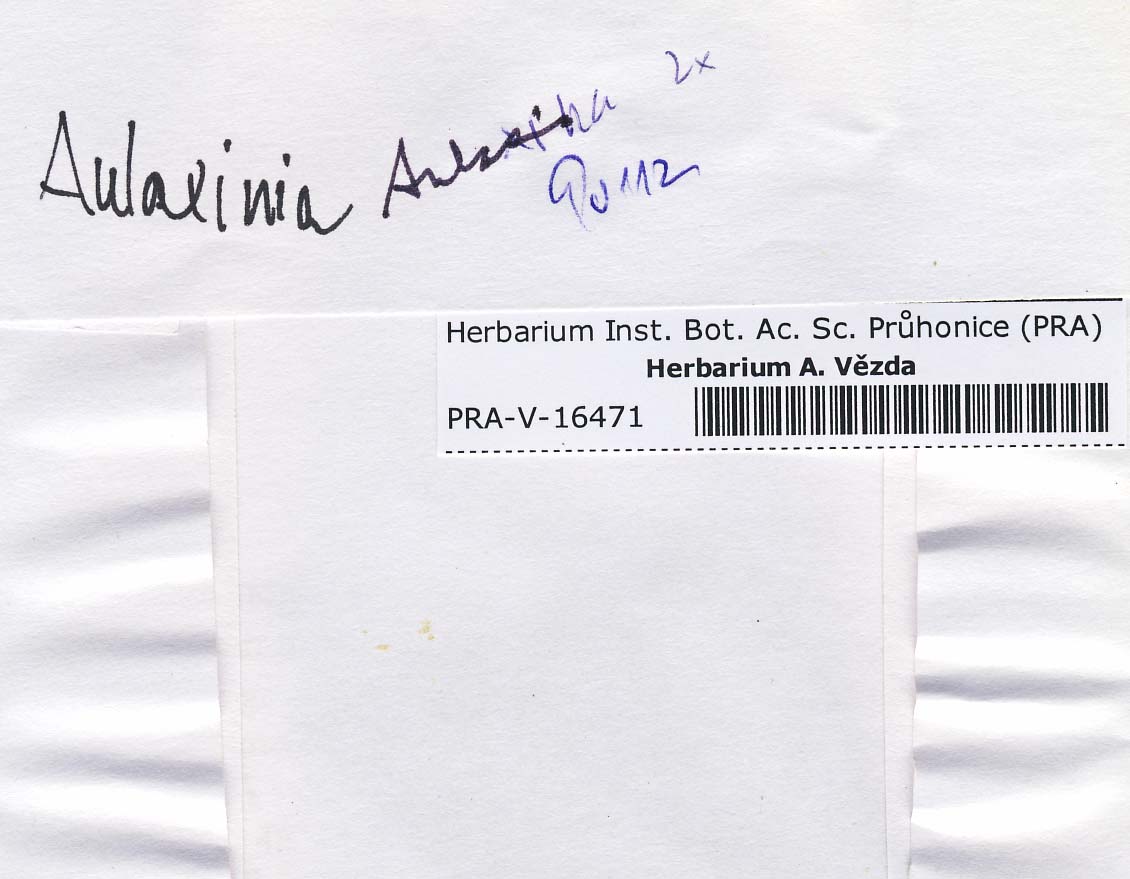 Aulaxinia 2x
Herbarium Inst. Bot. Ac. Sc. Průhonice (PRA)
Herbarium A. Vězda
PRA-V-16471